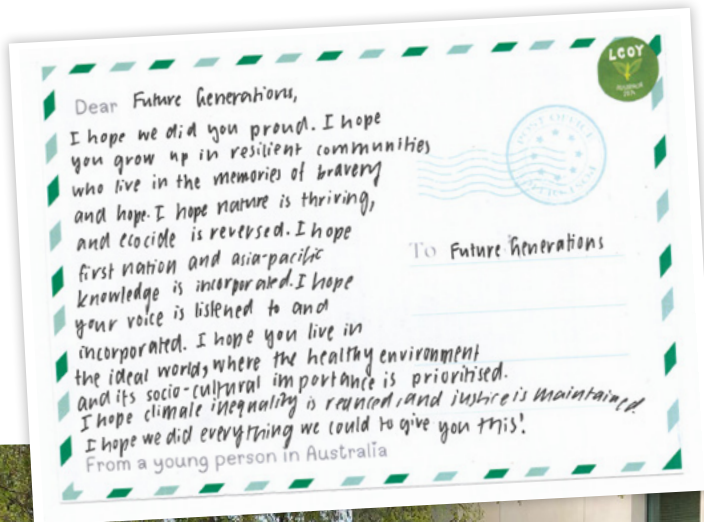 LCOY
Dear Future Generations,
I hope we did you proud. I hope
you grow up in resilient communities
who live in the memories of bravery
and hope. I hope nature is thriving,
and ecocide is reversed. I hope
first nation and asia-pacific
knowledge is incorporated. I hope
your voice is listened to and
incorporated. I hope you live in
the ideal world, where the healthy environment
and its socio-cultural importance is prioritised.
I hope climate inequality is reunced, and justice is maintained.
I hope we did everything we could to give you this!
From a young person in Australia
POST OFFICE
To Future Generations